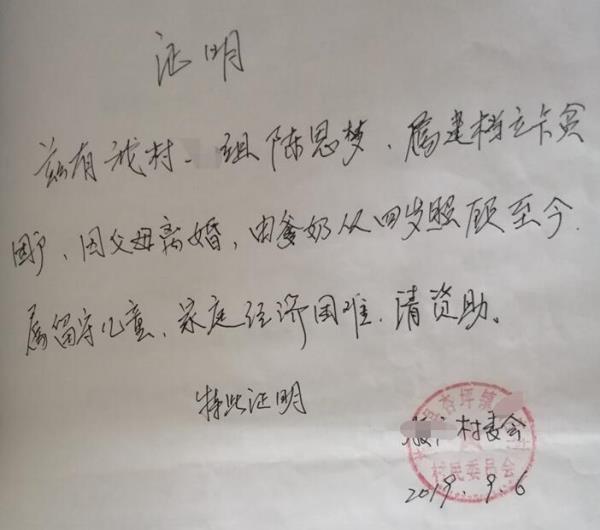 证明
兹有我村 组陈思梦、属建档立卡贫
困户、因父母离婚,由爹奶从四岁照顾至今.
属留守儿童、家庭经济困难.请资助。
特此证明
县杏坪镇
村委会
村民委员会
2019.9.6